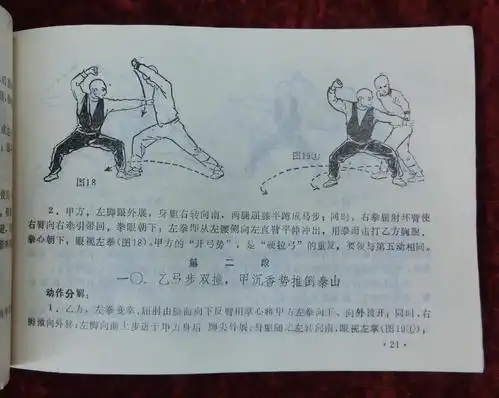 图18
图19①
2、甲方，左脚跟外展，身躯右转向南，两腿屈膝半蹲成马步；同时，右拳屈肘坏臂使
右臂向右牵引带回，拳眼朝下；左拳即从左腰侧向左直臂平伸冲出，用拳面击打乙方胸腹，
拳心朝下，眼视左拳(图18)。甲方的“开弓势”，是“硬拉弓”的重复，要领与第五动相同。
第二段
一〇、乙弓步双撞，甲沉香势推倒泰山
动作分解：
1、乙方，左拳变掌，屈肘由胸前向下反臂用掌心将甲方左拳向下、向外拨开；同时，右
脚液向外移；左脚向前上步进于甲方身后 脚尖外展；身躯随之左转向南，眼视左掌(图19①)；
·21·